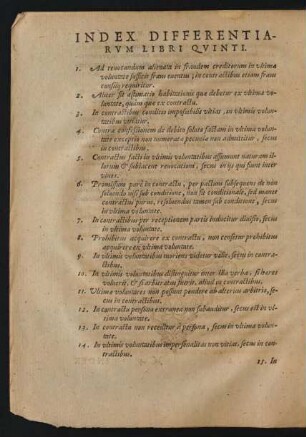 INDEX DIFFERENTIA-
RVM LIBRI QVINTI.
1. Ad reuocandum alienata in fraudem creditorum in vltima
voluntate sufficit fraus euentus; in contractibus etiam fraus
consilij requiritur.
2. Aliter fit æstimatio habitationis quæ debetur ex vltima vo-
luntate, quàm quæ ex contractu.
3. In contractibus conditio impossibilis vitiat, in vltimis volun-
tatibus vitiatur.
4. Contra confessionem de debito soluto factam in vltima volun-
tate exceptio non numeratæ pecuniæ non admittitur, secus
in contractibus.
5. Contractus facti in vltimis voluntatibus assumunt naturam il-
larum & subiacent reuocationi, secus in ijs qui fiunt inter
viuos.
6. Promissum purè in contractu, per pactum subsequens de non
soluendo nisi sub conditione, non fit conditionale, sed manet
contractus purus, resoluendus tamen sub conditione, secus
in vltima voluntate.
7. In contractibus per receptionem partis inducitur diuisio, secus
in vltima voluntate.
8. Prohibitus acquirere ex contractu, non censetur prohibitus
acquirere ex vltima voluntate.
9. In vltimis voluntatibus moriens videtur valle, secus in contra-
ctibus.
10. In vltimis voluntatibus distinguitur inter illa verba, si hæres
voluerit, & si arbitratus fuerit, aliud in contractibus.
11. Vltimæ voluntates non possunt pendere ab alterius arbitrio, se-
cus in contractibus.
12. In contractu persona extranea non subauditur, secus est in vl-
tima voluntate.
13. In contractu non receditur à persona, secus in vltima volun-
tate.
14. In vltimis voluntatibus impersonalitas non vitiat, secus in con-
tractibus.
15. In